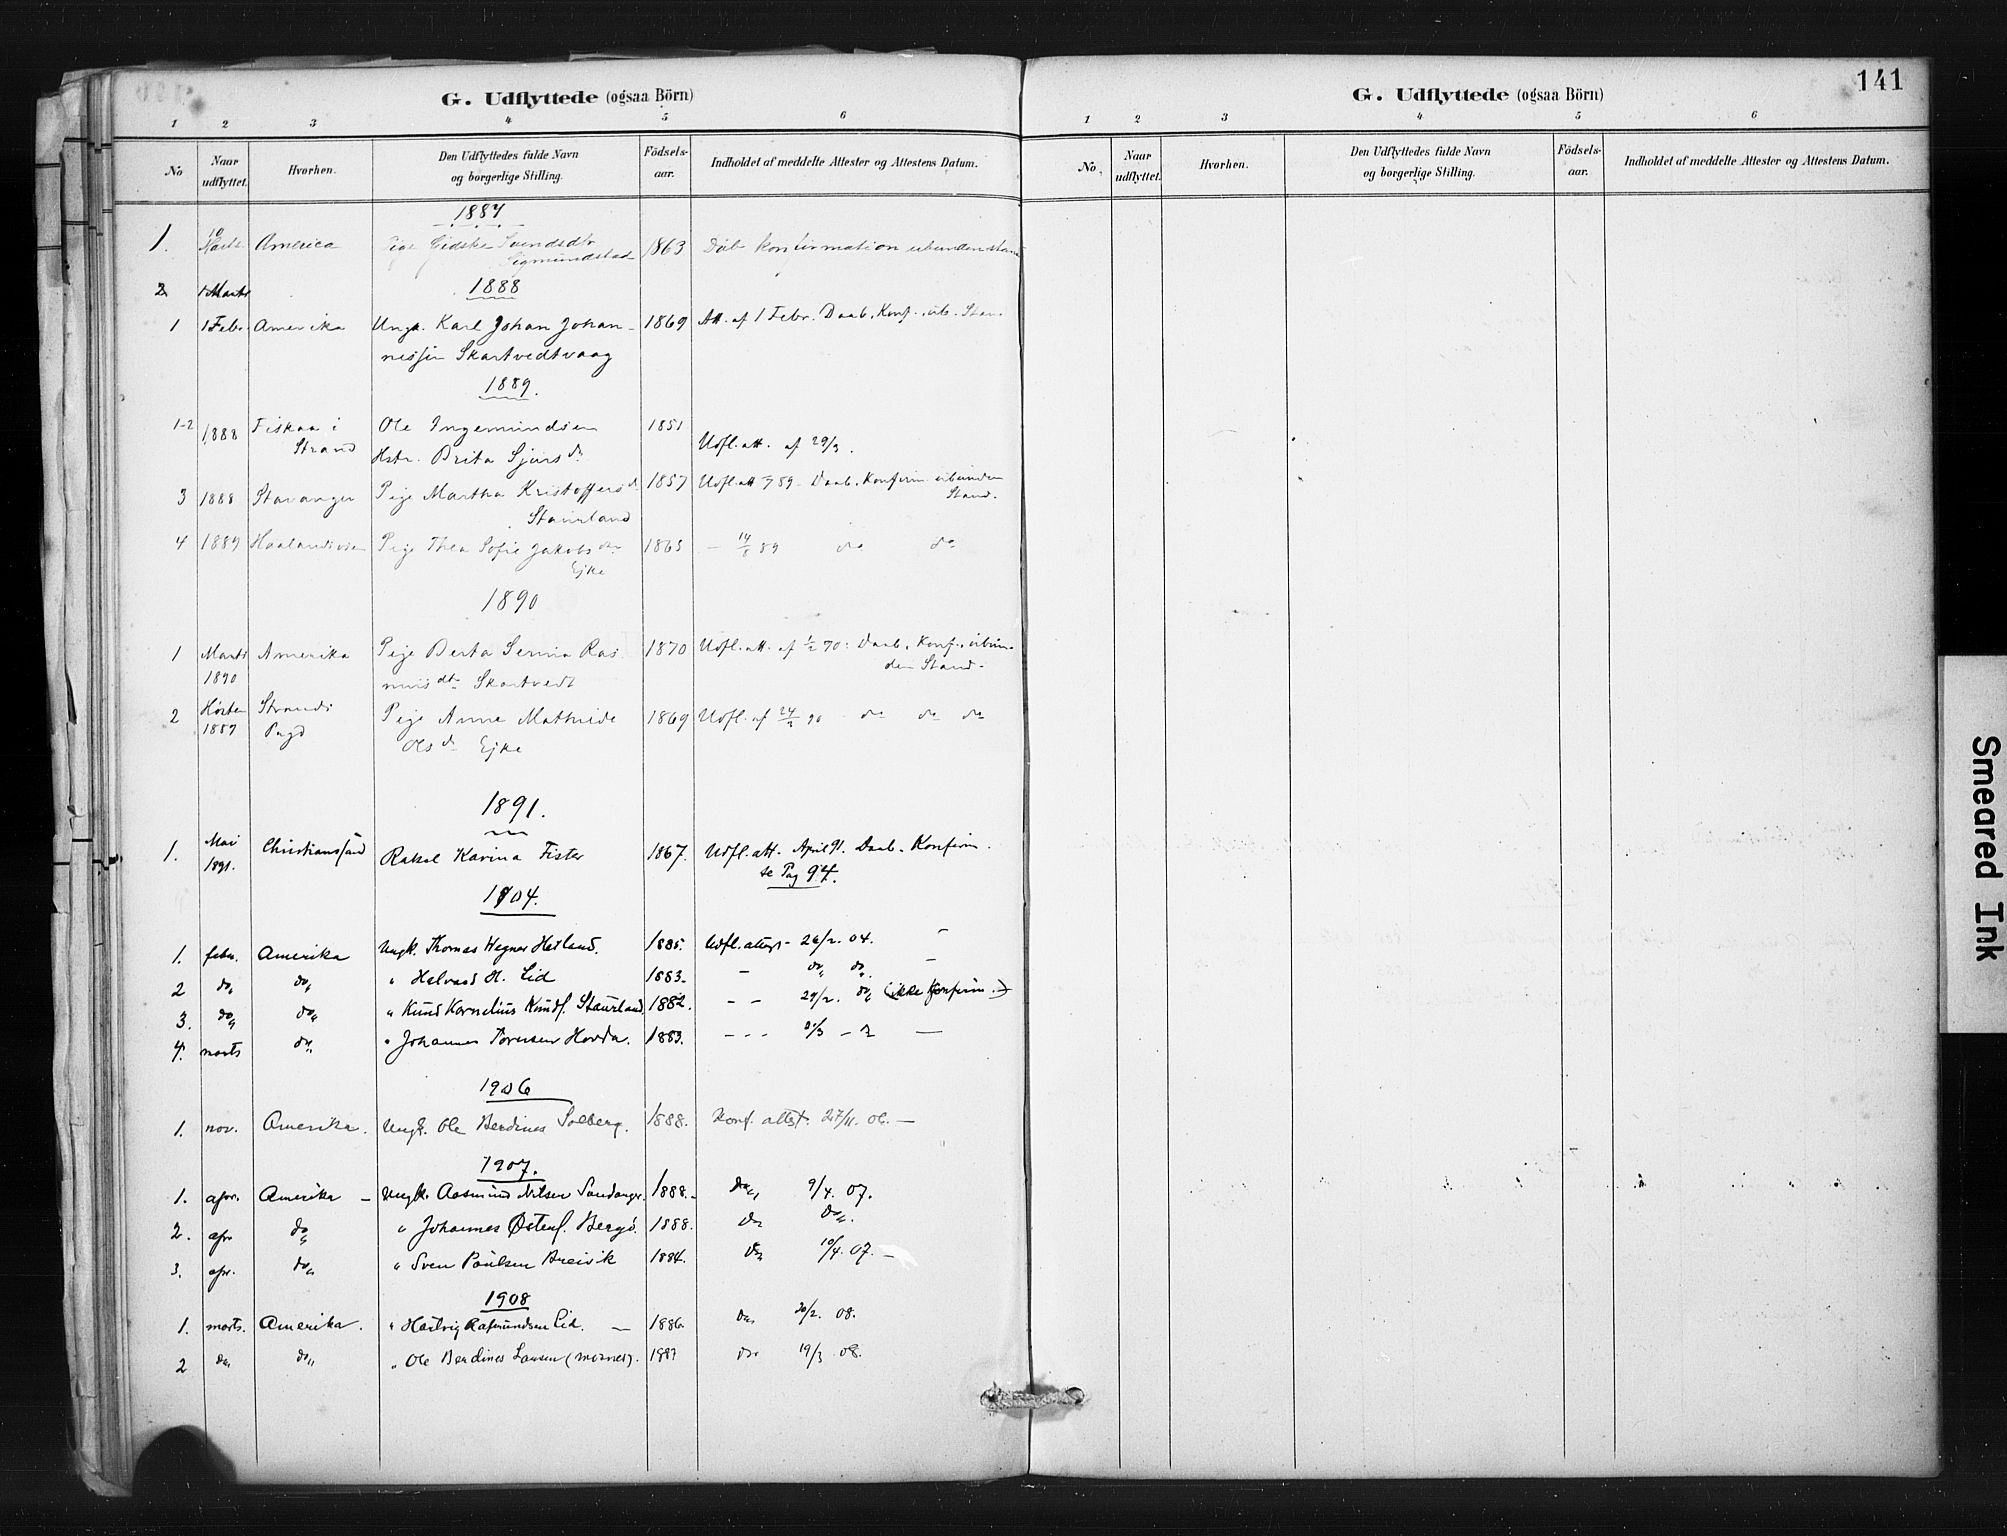 G. Udflyttede (ogsaa Börn)
1 2 3 4 5 6
No Naar udflyttet. Hvorhen. Den Udflyttedes fulde Navn og borgerlige Stilling. Födsels-aar. Indholdet af meddelte Attester og Attestens Datum.
1887
1. America Pige Gidske Svendsdtr 1863 Döb konfirmation ubunden stand
Sigmundstad
2 1 Marts 1888
1 1 Febr. Amerika Ungk. Karl Johan Johan- 1869 Att. af 1 Febr. Daab, Konf., ub. Stan.
nessen Skartvedtvaag
1889.
1-2 1888 Fiskaa i Ole Ingemundsen 1851
Strand Hstr. Brita Sjurs dr. Udfl. att. af 29/3.
3 1888 Stavanger Pige Martha Kristoffers dr 1857 Udfl. att 89 Daab, Konfirm ubunden
Staurland Stand.
4 1889 Pige Thea Sofie Jakobs dtr 1865 — 14/8 89 do do
Ejke
1890
1 Marts Amerika Pige Berta Serina Ras 1870 Udfl. att. af ½ 90: Daab, Konf., ubun-
1890 mus dtr Skartvedt den Stand.
2 Hösten Strands Pige Anna Mathilde 1869 Udfl. af 24/2 90 do do do
1889 Pngd Ols dr Ejke
1891.
1. Mai Christianssand Rakel Karina Fister 1867. Udfl. att. April 91. Daab. Konfirm.
1891. se Pag 94.
1904.
1. febr. Amerika Ungk. Thomas Wegner Hetland. 1885. Udfl. attest - 26/2. 04. "
2 do, do, " Halvard H. Lid 1883. - do, do, -
3. do, do, " Knud Kornelius Knudf. Staurland 1882. - - 29/2. do, (ikke Konfirm.)
4. marts do, " Johannes Toresen Hovda. 1883. - - - /3 - —
1906
1. nov. Amerika. Ungk. Ole Berdines Solberg. 1888. Konf. attst. 27/11. 06. —
1907.
1. apr. Amerika — Ungk. Aasmund Nilsen Sandanger. 1888. do, 9/4. 07.
2. apr do, " Johannes Østenf. Bergö. 1888. do do,.
3. apr. do, " Sven Paulsen Breivik 1884. do 10/4. 07. —
1908
1. marts. Amerika. " Hartvig Rasmundsen Lid. — 1886. do, 20/2. 08.
2 do, do, " Ole Berdines Larsen (Mosnes). 1887 do. 19/3 08.
G. Udflyttede (ogsaa Börn)
141
1 2 3 4 5 6
No. Naar udflyttet. Hvorhen. Den Udflyttedes fulde Navn og borgerlige Stilling. Födsels-aar. Indholdet af meddelte Attester og Attestens Datum.
Smeared Ink